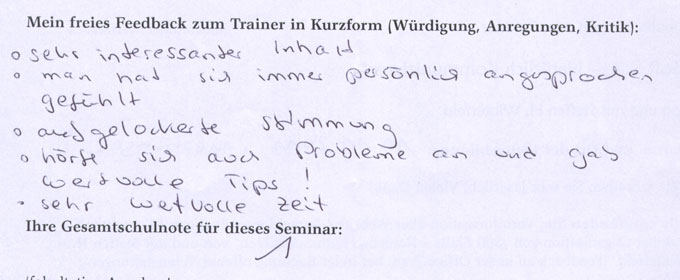 Mein freies Feedback zum Trainer in Kurzform (Würdigung, Anregungen, Kritik):
o sehr interessanter Inhalt
o man hat sich immer persönlich angesprochen
gefühlt
o aufgelockerte Stimmung
o hörte sich auch Probleme an und gab
wertvolle Tips !
• sehr wetvolle Zeit
Ihre Gesamtschulnote für dieses Seminar:
1